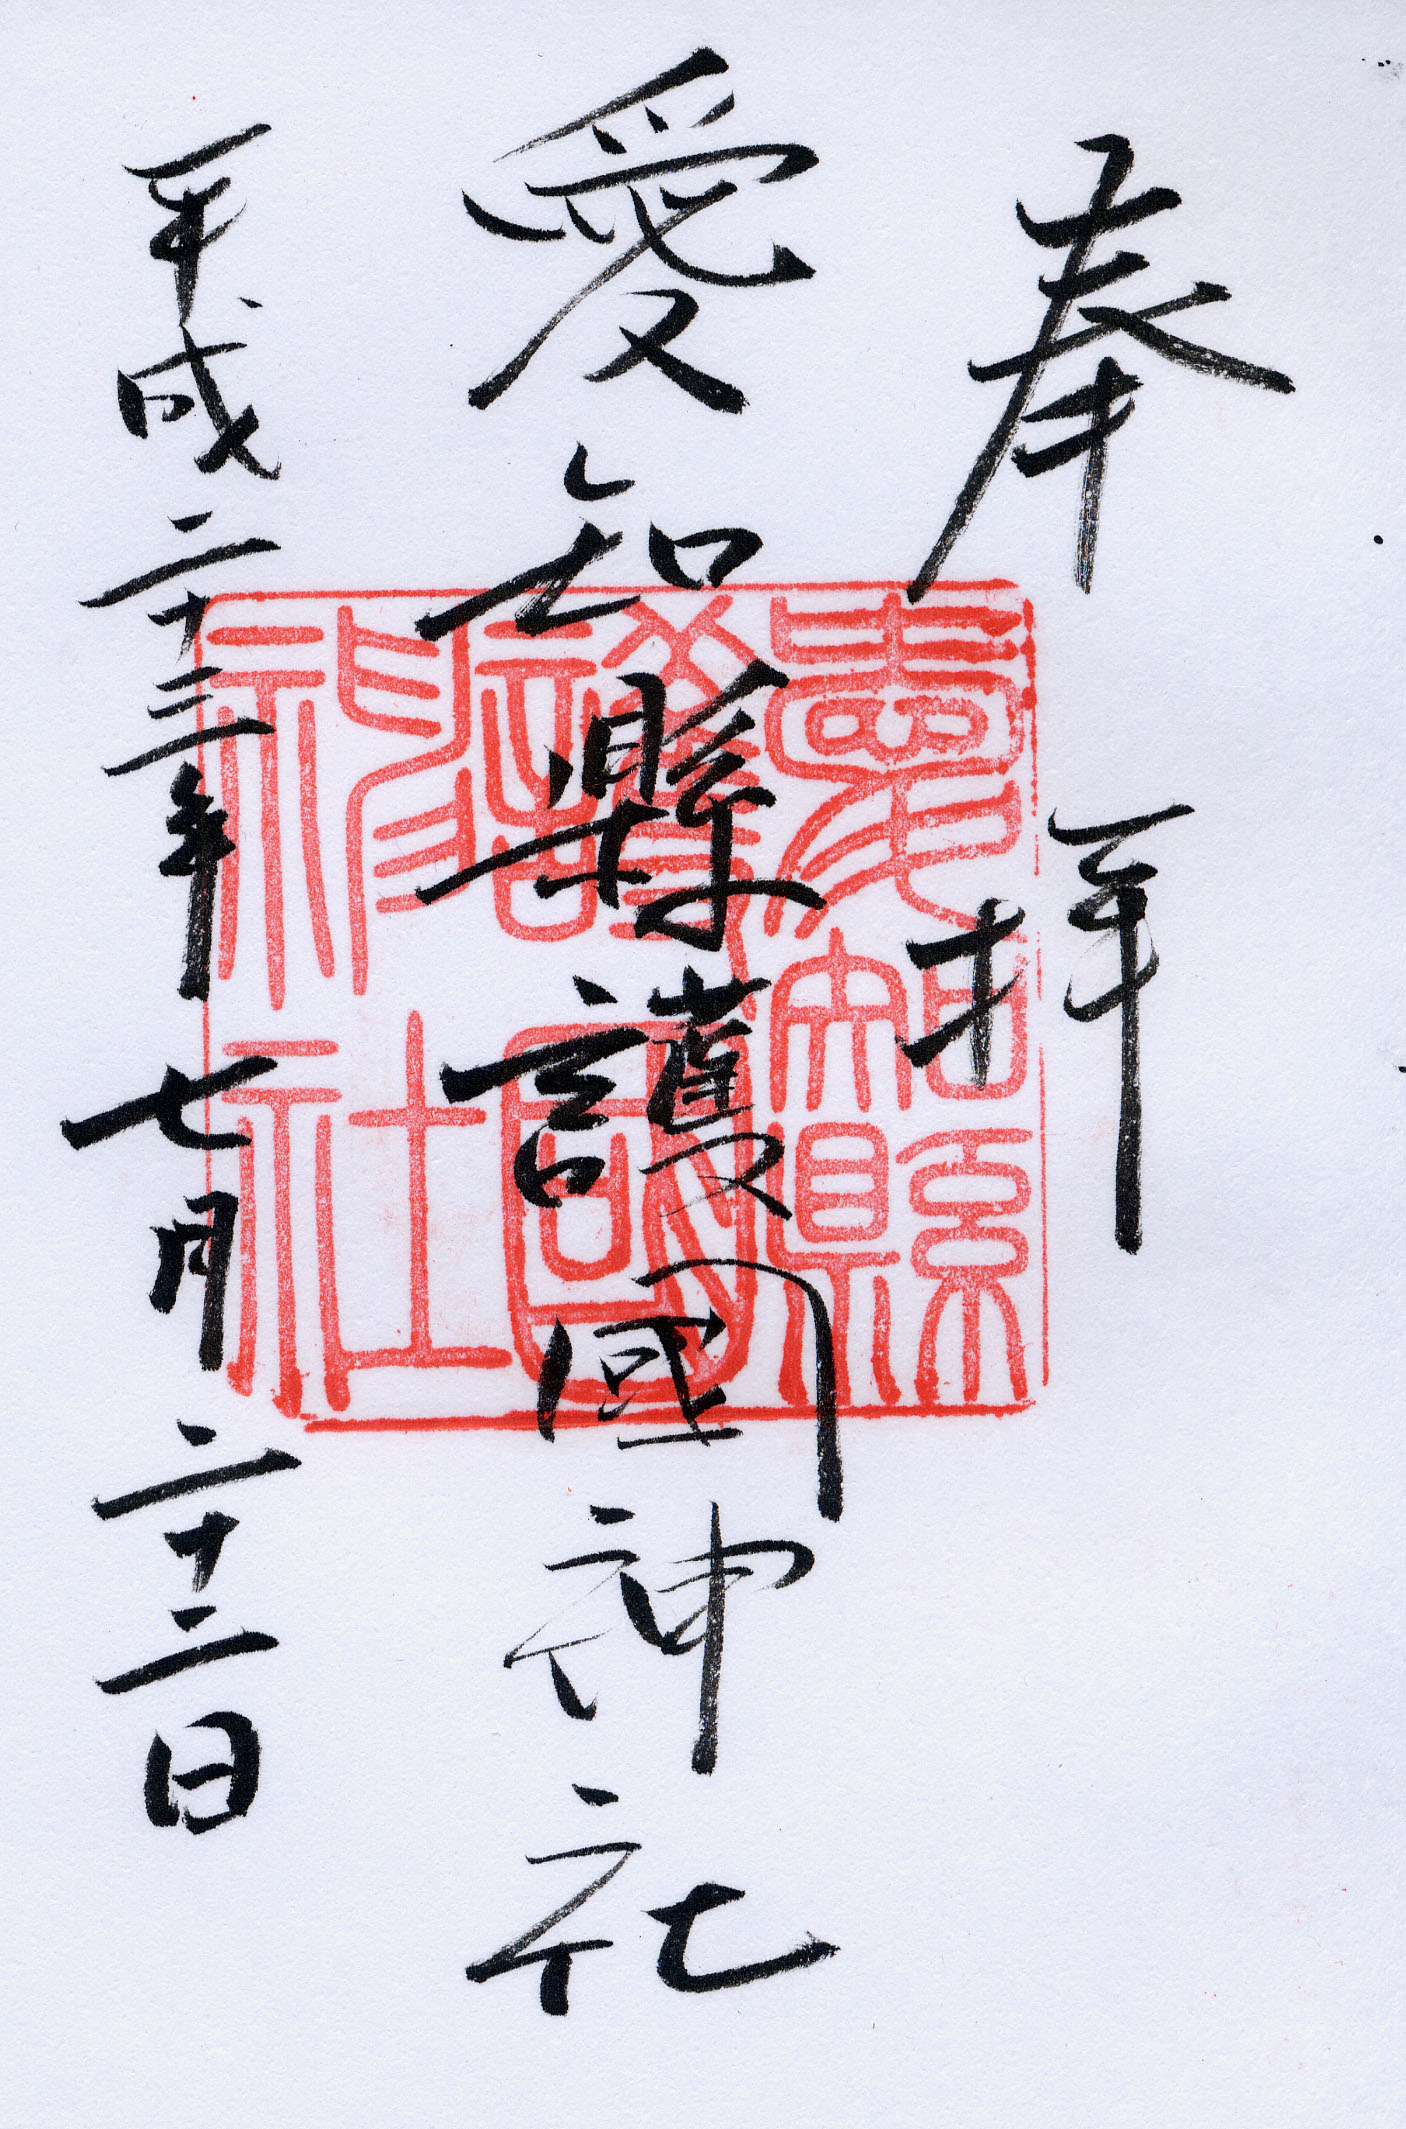 奉拝
愛知縣護國神社
平成二十三年七月二十二日
愛知縣
護國
神社